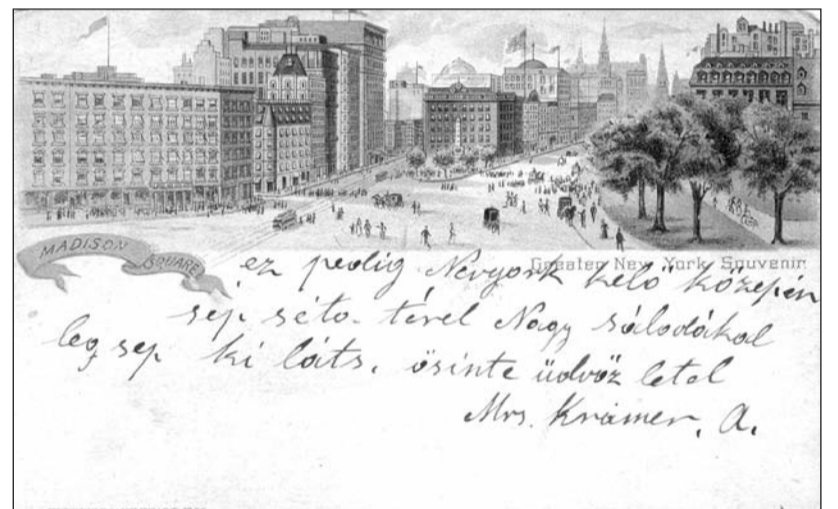 MADISON SQUARE
Greater New York Souvenir
ez pedig Nevyork kelö közepén
sep séto. térel Nagy sálodákal
leg sep ki láts, ösinte üdvöz letel
Mrs. Krámer, A.